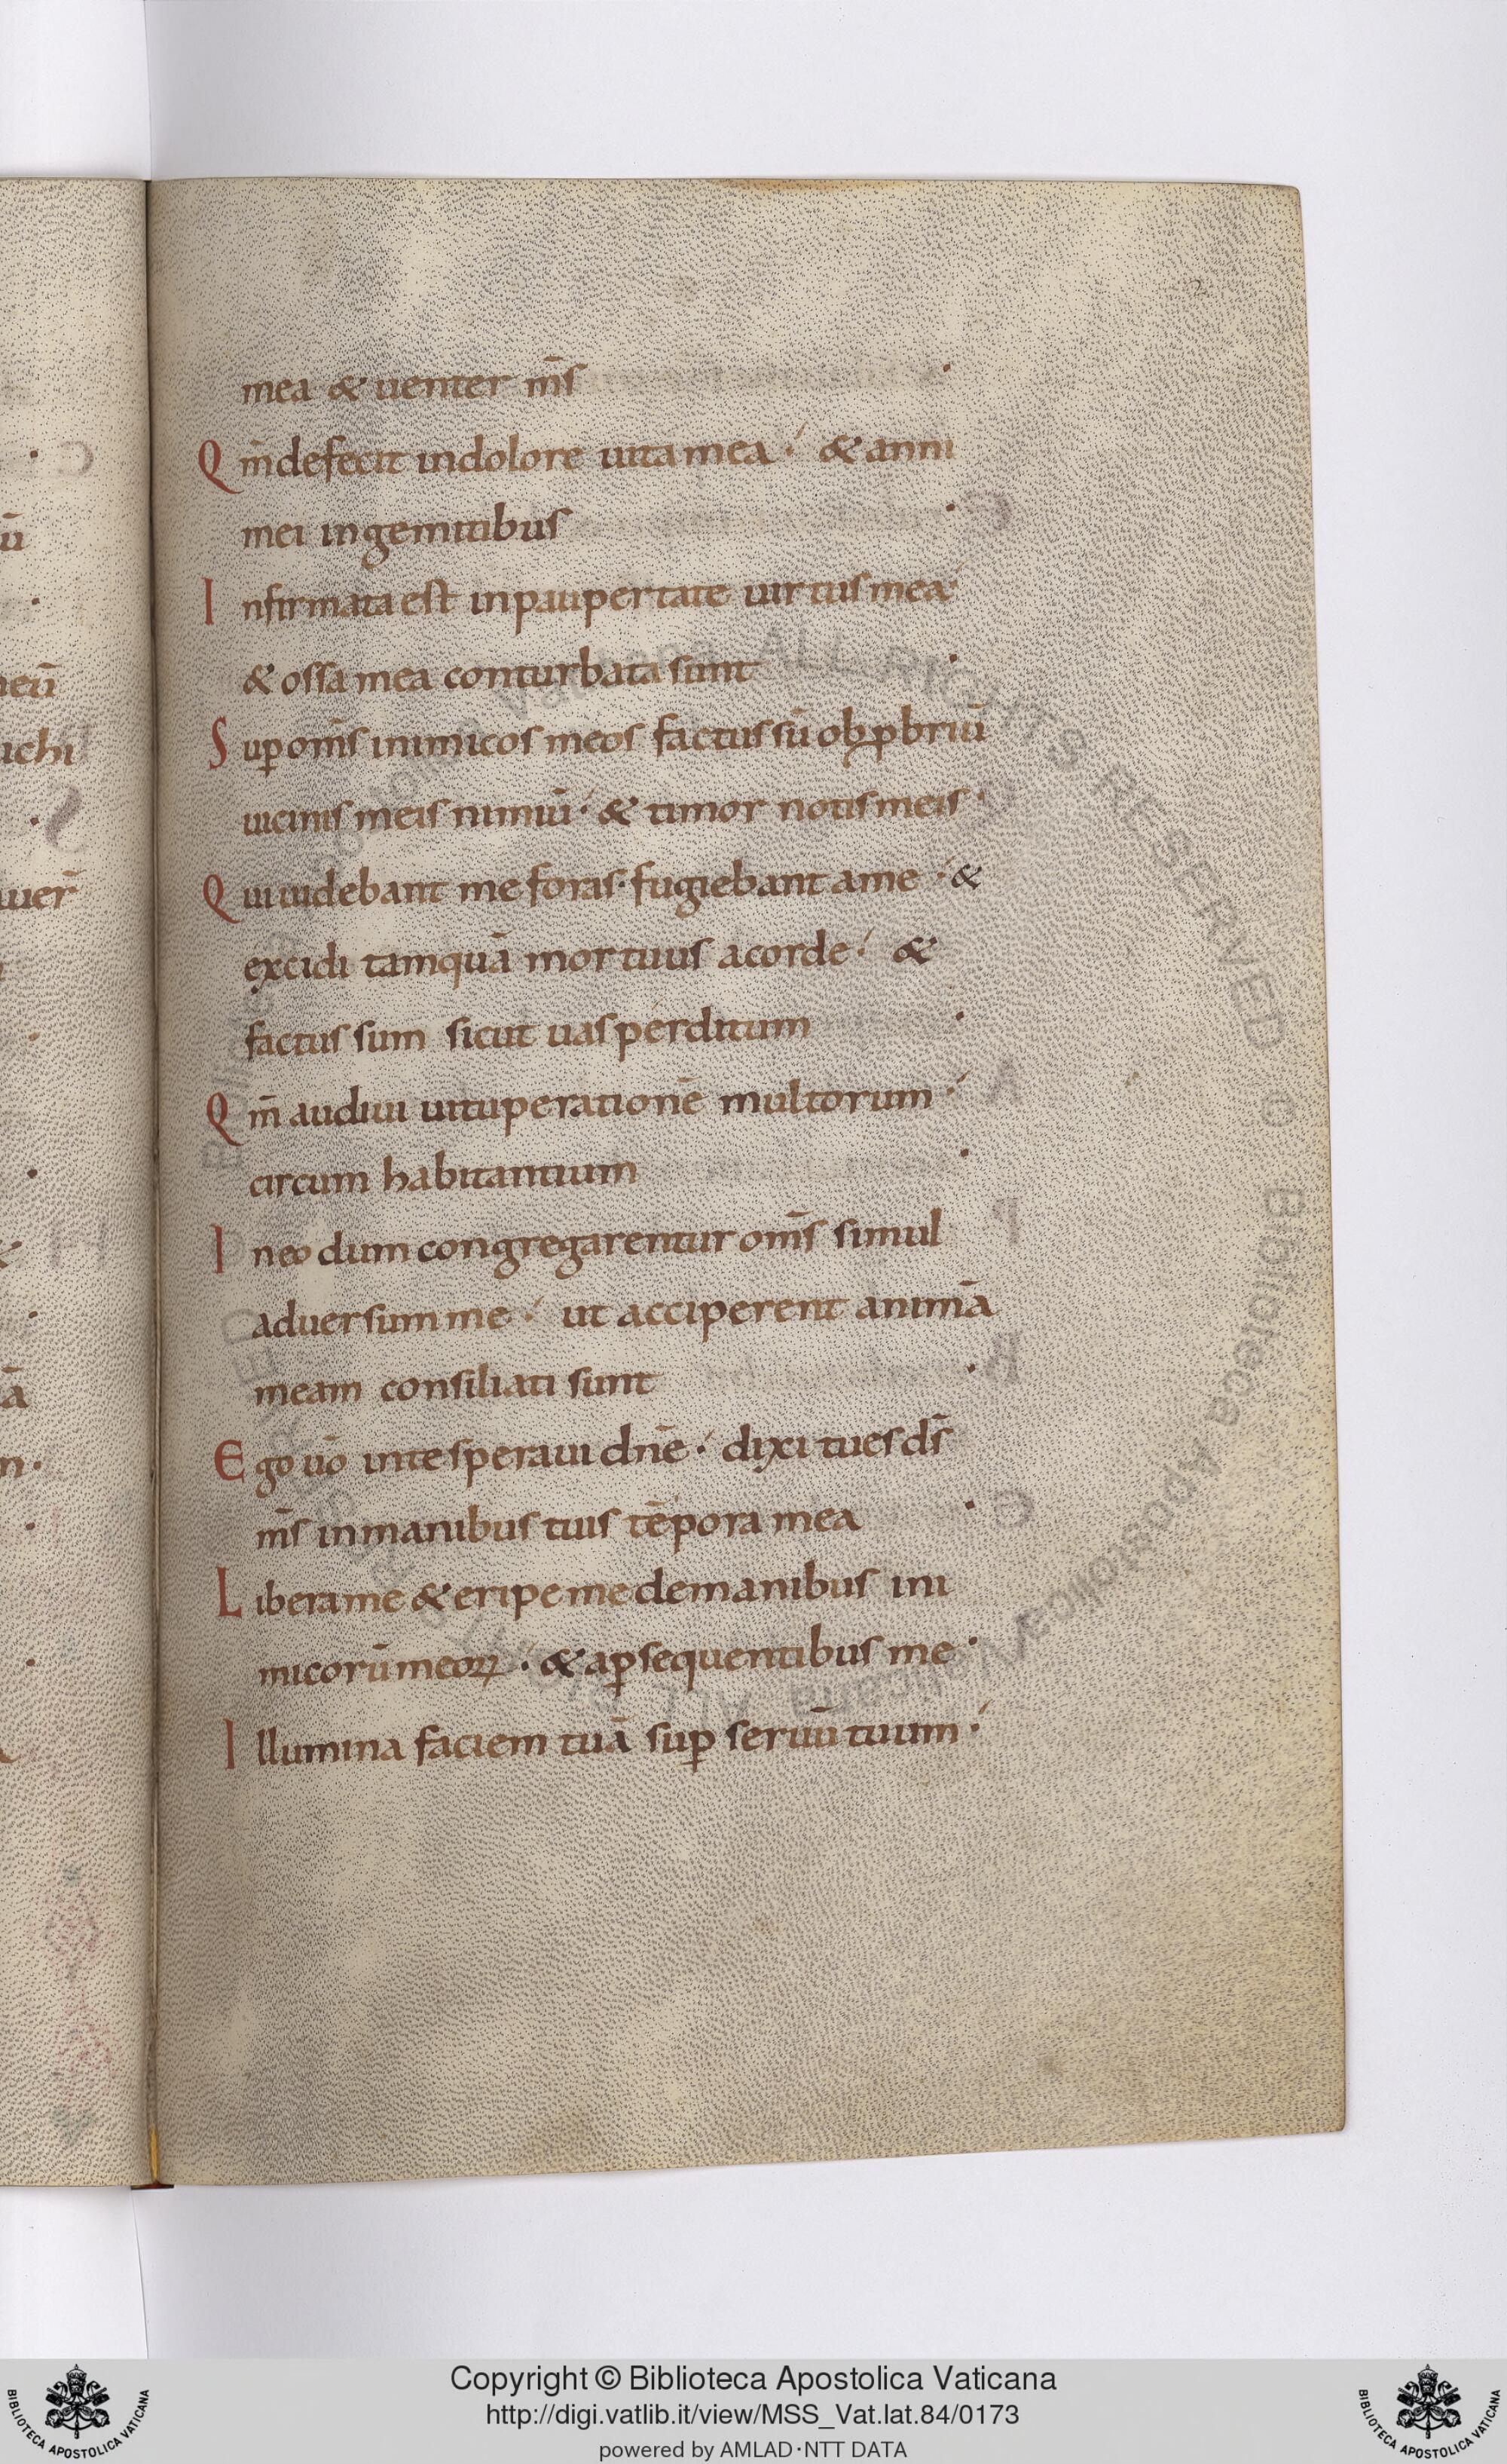 2
mea & uenter m̄s ·
Qm̄ defecit in dolore uita mea ·́ & anni
mei in gemitibus ·
Infirmata est in paupertate uirtus mea ·́
& ossa mea conturbata sunt ·
Sup̱ om̄s inimicos meos factus sū obp̱briū
uicinis meis nimiū ·́ & timor notis meis ·
Qui uidebant me foras · fugiebant a me ·́ &
excidi tamquā mortuus a corde ·́ &
factus sum sicut uas perditum ·
Qm̄ audiui uituperationē multorum ·́
circum habitantium ·
In eo dum congregarentur om̄s simul
aduersum me ·́ ut acciperent animā
meam consiliati sunt ·
Ego ūo in te speraui dn̄e ·́ dixi tu es ds̄
m̄s in manibus tuis tēpora mea ·
Libera me & eripe me de manibus ini
micorū meoꝝ ·́ & a p̱sequentibus me ·
Illumina faciem tuā sup̱ seruū tuum ·́
Copyright © Biblioteca Apostolica Vaticana
http://digi.vatlib.it/view/MSS_Vat.lat.84/0173
powered by AMLAD·NTT DATA
BIBLIOTECA APOSTOLICA VATICANA
BIBLIOTECA APOSTOLICA VATICANA